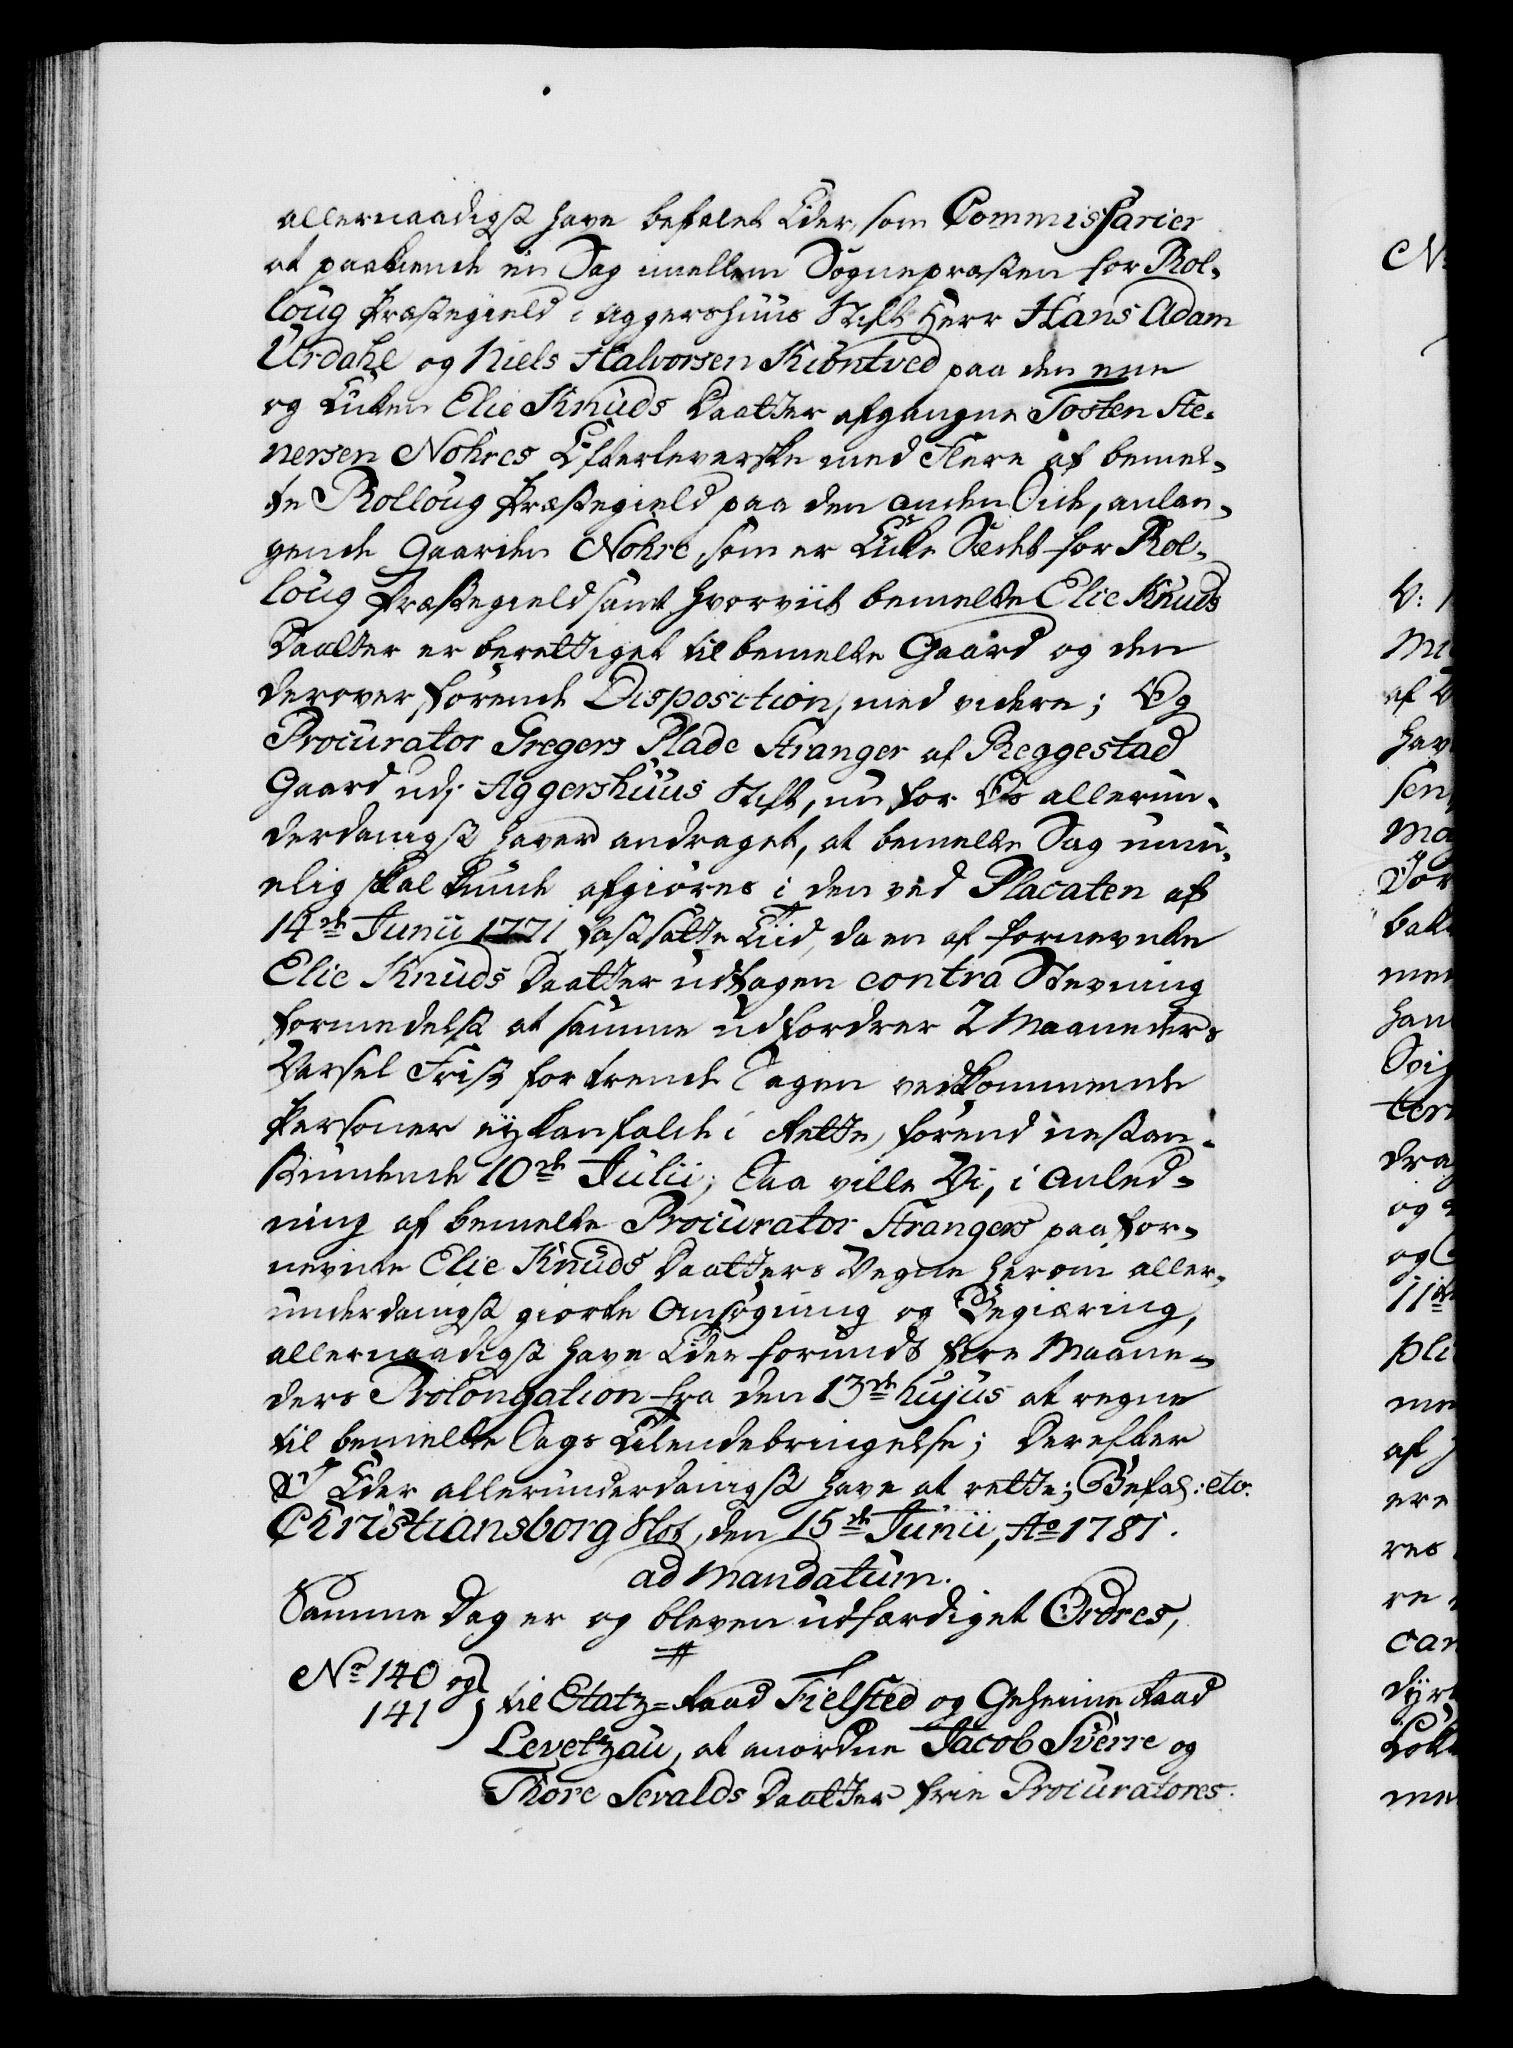 allernaadigst have befalet Eder, som Commissarier
at paakiende en Sag imellem Sognepræsten for Rol-
loug Præstegield i Aggershuus Stift Herr Hans Adam
Urdahl og Niels Halvorsen Kiöntved paa den ene
og Enken Elie Knuds Daatter afgangne Tosten Ste-
nersen Nohres Efterleverske med Flere af bemel-
te Rolloug Præstegield paa den anden Side, anlan-
gende Gaarden Nohre, som er Enke Sæde for Rol-
loug Præstegield samt hvorviit bemelte Elie Knuds
Daatter er berettiget til bemelte Gaard og den
derover förende Disposition, med videre; Og
Procurator Gregers Plade Stranger af Reggestad
Gaard udj Aggershuus Stift, nu for Os allerun-
derdanigst haver andraget, at bemelte Sag umu-
elig skal kunde afgiöres i den ved Placaten af
14de Junii 1771 fastsatte Tiid, da en af fornevnte
Elie Knuds Daatter udtagen contra Stevning
formedelst at samme udfordrer 2 Maaneders
Varsel Frist for trende Sagen vedkommende
Personer ey kan falde i Rette, förend nestan-
stundende 10de Julii; Saa ville Vi, i Anled-
ning af bemelte Procurator Strangers paa for-
nevnte Elie Knuds Daatters Vegne herom aller-
underdanigst giorte Ansögning og Begiæring,
allernaadigst have Eder forundt fire Maane-
ders Prolongation fra den 13de hujus at regne
til bemelte Sags Tilendebringelse; Derefter
I Eder allerunderdanigst have at rette; Befal: etc.
Christiansborg Slot, den 15de Junii, Ao 1781.
ad Mandatum.
Samme Dag er og bleven udfærdiget Ordres,
No 140 og
141) til Etatz-Raad Fielsted og Geheime Raad
Levetzau, at anordne Jacob Sverre og
Thore Sevalds Daatter frie Procuratores.